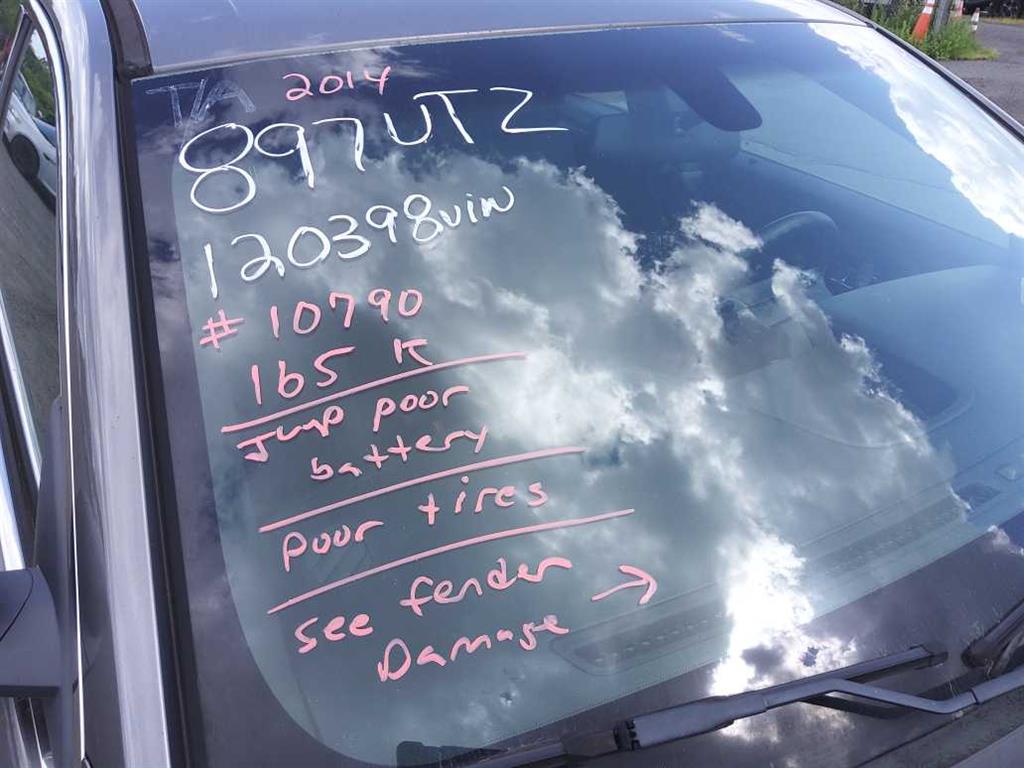 T/A 2014
897UTZ
120398vin
# 10790
165 K
Jump poor
battery
poor tires
see fender →
Damage